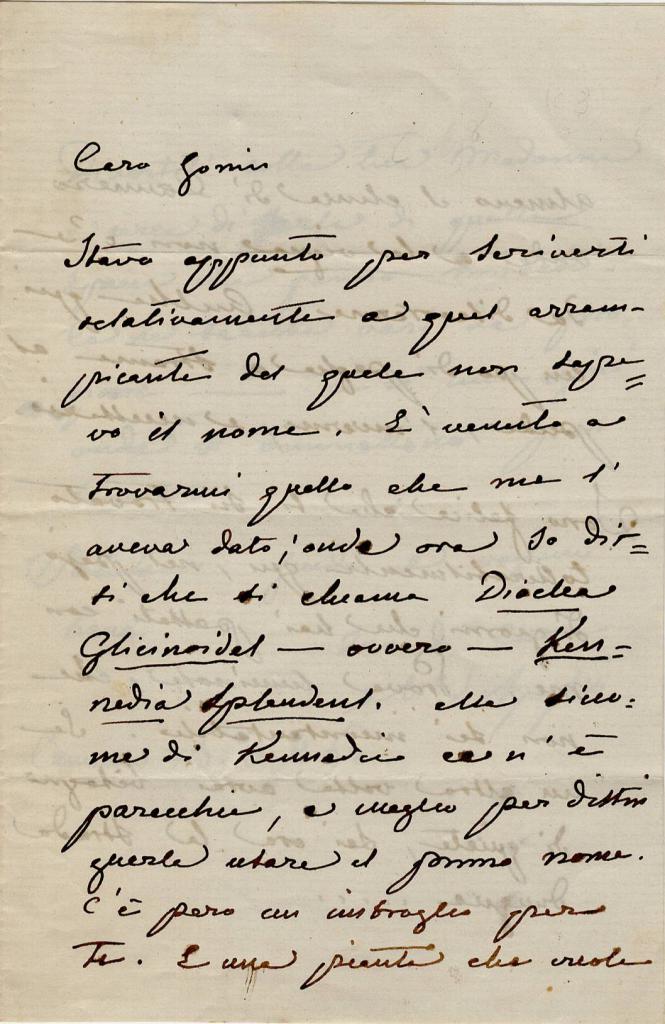 Caro Gonin
Stavo appunto per scriverti
relativamente a quel arram-
picante del quale non sape=
vo il nome. E' venuto a
trovarmi quello che me l'
aveva dato; onde ora so dir=
ti che si chiama Dioclea
Glicinoides — ovvero — Ken=
nedia Splendens. Ma sicco-
me di Kennedie ce n'è
parecchie, è meglio per distin
guerle usare il primo nome.
C'è però un imbroglio per
te. È una pianta che vuole